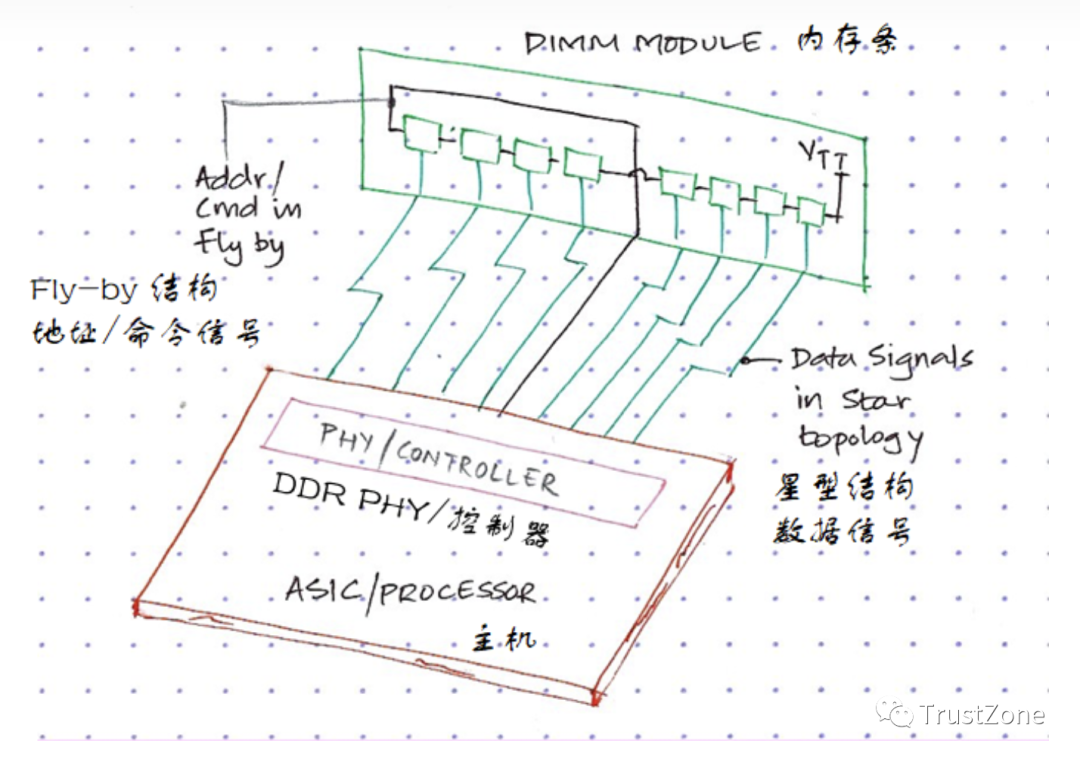 DIMM MODULE 内存条
VTT
Addr/
Cmd in
Fly by
Fly-by 结构
地址/命令信号
Data Signals
in Star
topology
星型结构
数据信号
PHY/CONTROLLER
DDR PHY/控制器
ASIC/PROCESSOR
主机
TrustZone